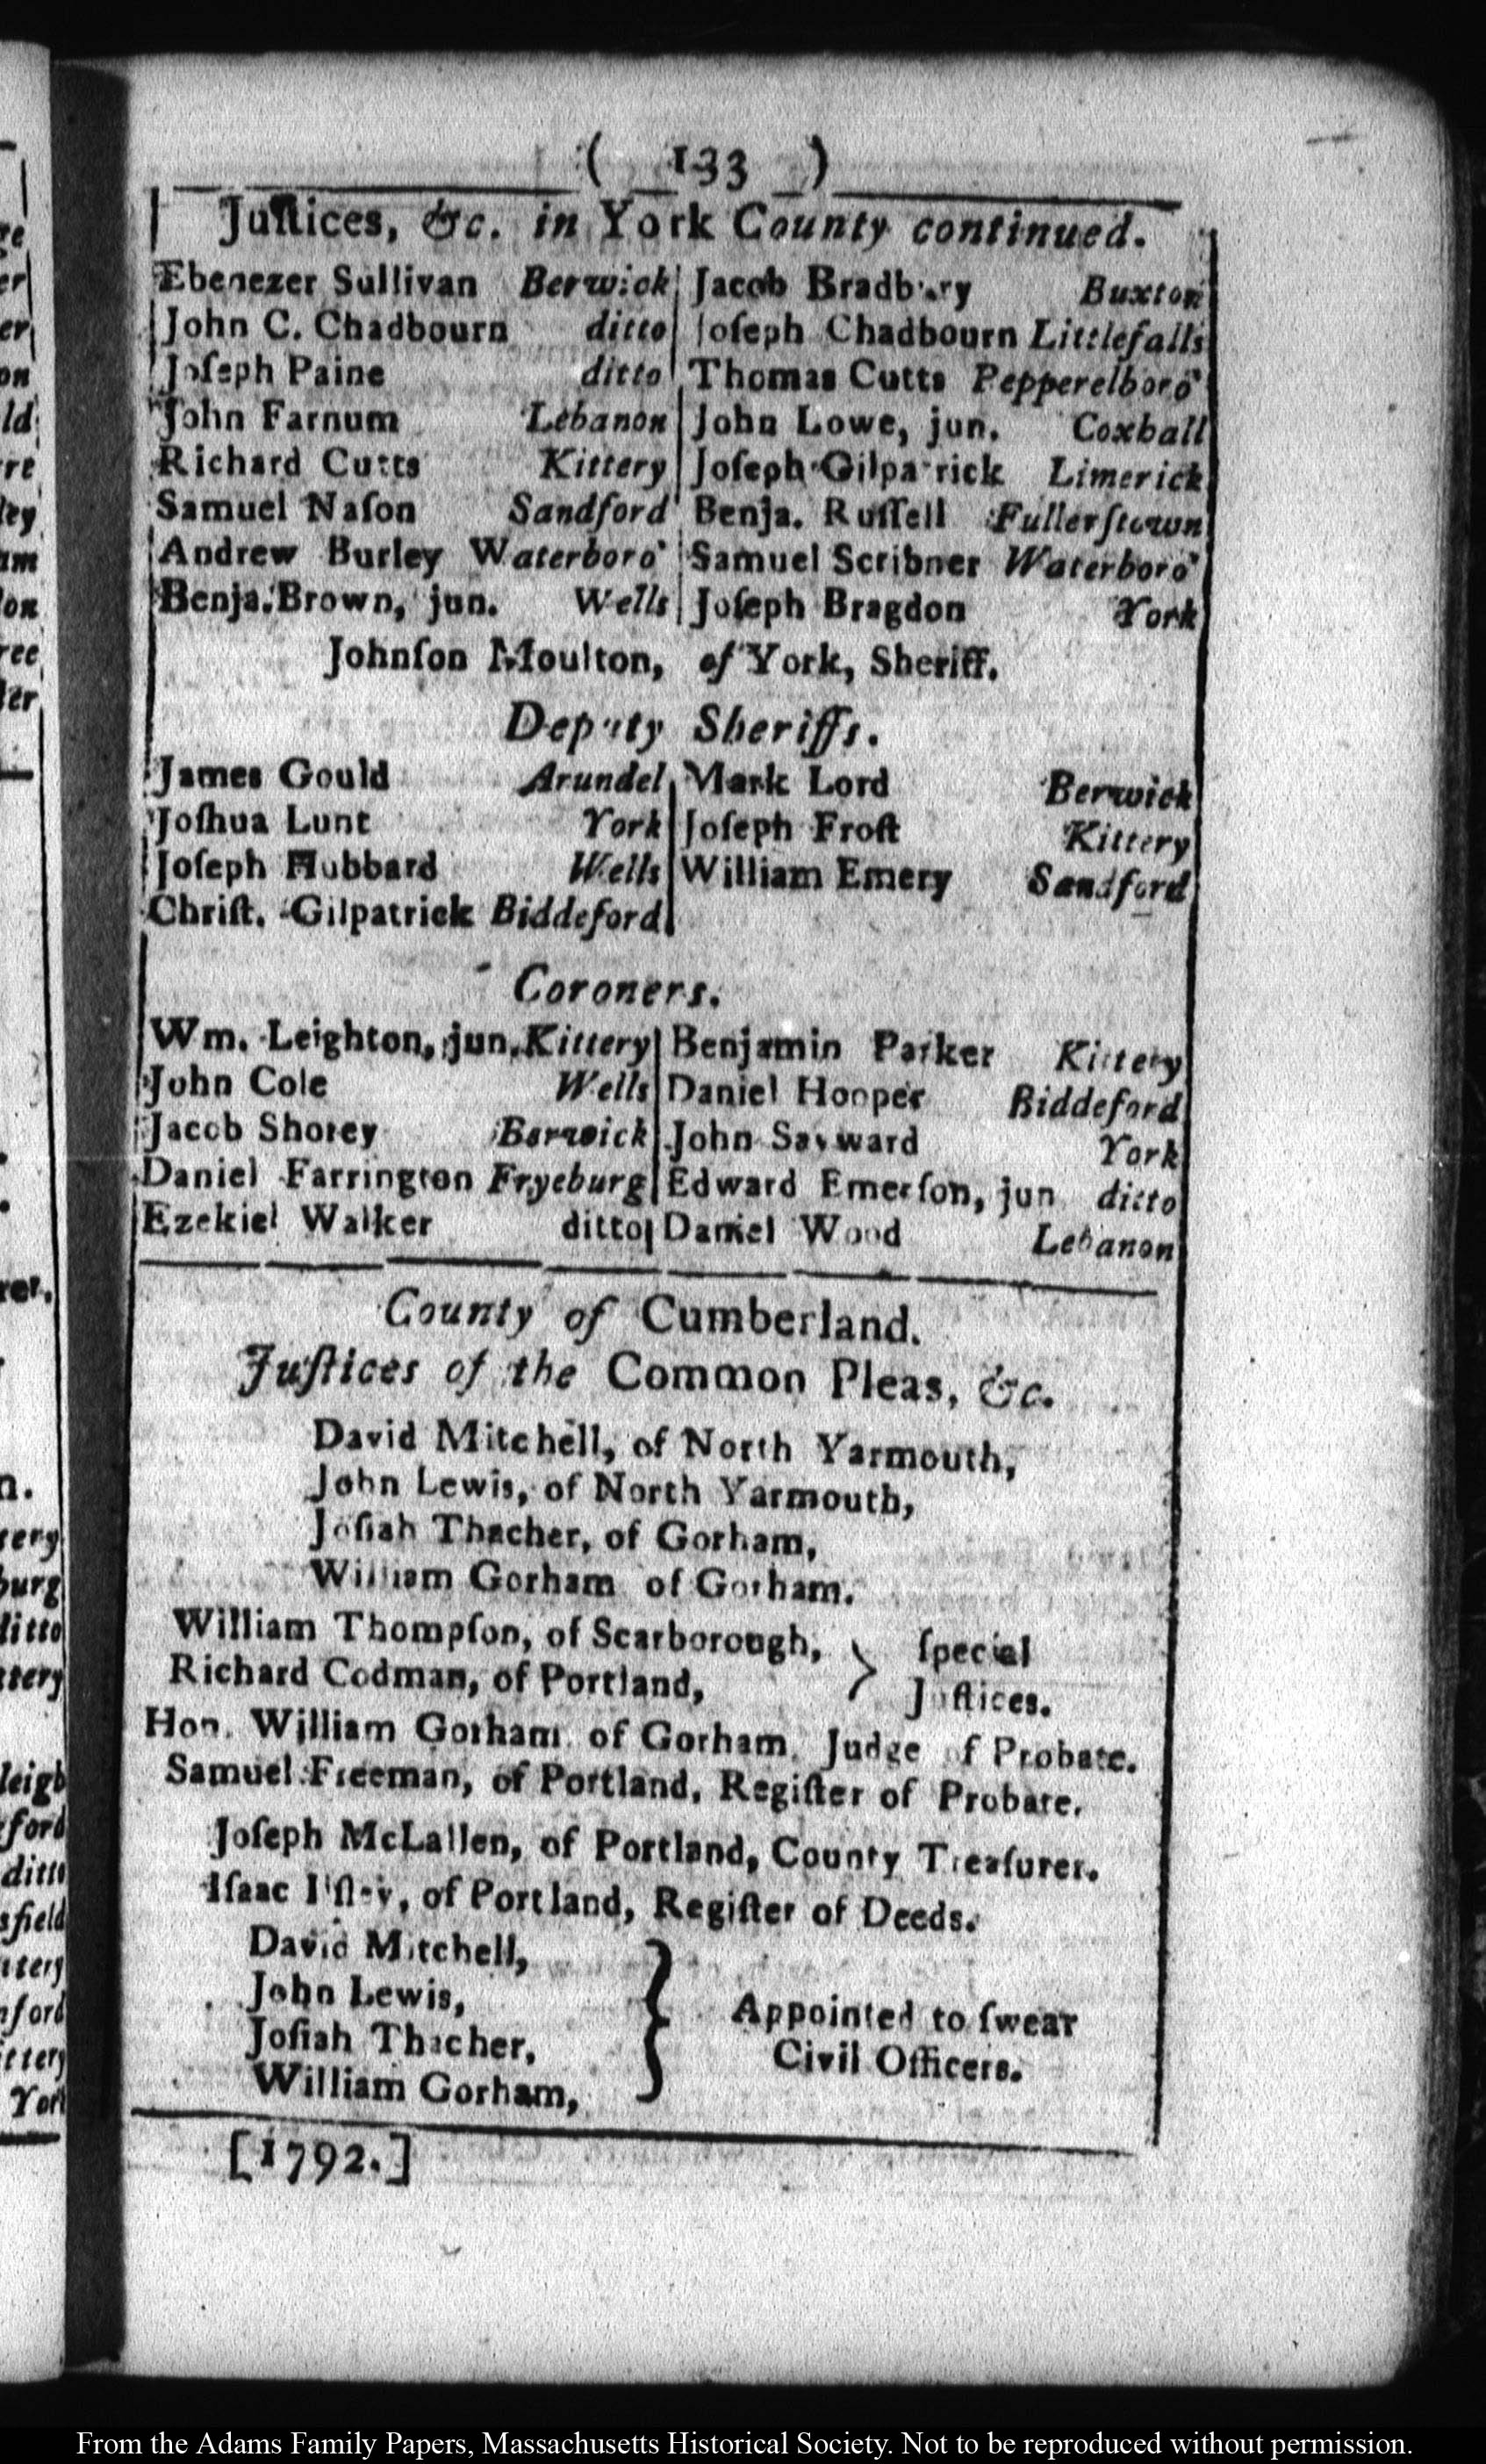 ( 133 )
Juſtices, &c. in York County continued.
Ebenezer Sullivan Berwick
John C. Chadbourn ditto
Joſeph Paine ditto
John Farnum Lebanon
Richard Cutts Kittery
Samuel Naſon Sandford
Andrew Burley Waterboro'
Benja. Brown, jun. Wells
Jacob Bradbury Buxton
Joſeph Chadbourn Littlefalls
Thomas Cutts Pepperelboro'
John Lowe, jun. Coxhall
Joſeph Gilpatrick Limerick
Benja. Ruſſell Fullerſtown
Samuel Scribner Waterboro'
Joſeph Bragdon York
Johnſon Moulton, of York, Sheriff.
Deputy Sheriffs.
James Gould Arundel
Joſhua Lunt York
Joſeph Hubbard Wells
Chriſt. Gilpatrick Biddeford
Mark Lord Berwick
Joſeph Froſt Kittery
William Emery Sandford
Coroners.
Wm. Leighton, jun. Kittery
John Cole Wells
Jacob Shorey Berwick
Daniel Farrington Fryeburg
Ezekiel Walker ditto
Benjamin Parker Kittery
Daniel Hooper Biddeford
John Sayward York
Edward Emerſon, jun ditto
Daniel Wood Lebanon
County of Cumberland.
Juſtices of the Common Pleas, &c.
David Mitchell, of North Yarmouth,
John Lewis, of North Yarmouth,
Joſiah Thacher, of Gorham,
William Gorham of Gorham.
William Thompſon, of Scarborough,
Richard Codman, of Portland,
ſpecial
Juſtices.
Hon. William Gorham of Gorham, Judge of Probate.
Samuel Freeman, of Portland, Regiſter of Probate.
Joſeph McLallen, of Portland, County Treaſurer.
Iſaac Ilſley, of Portland, Regiſter of Deeds.
David Mitchell,
John Lewis,
Joſiah Thacher,
William Gorham,
Appointed to ſwear
Civil Officers.
[1792.]
From the Adams Family Papers, Massachusetts Historical Society. Not to be reproduced without permission.